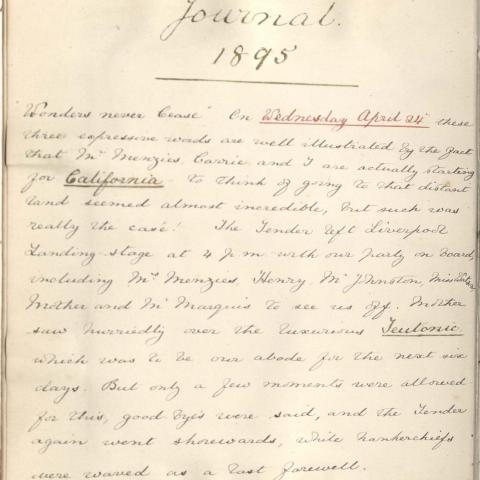 Journal.
1895
"Wonders never Cease" On Wednesday April 24th these
three expressive words are well illustrated by the fact
that Mr Menzies, Carrie and I are actually starting
for California to think of going to that distant
land seemed almost incredible, but such was
really the case! The Tender left Liverpool
Landing-stage at 4 p.m. with our party on board,
including Mrs Menzies, Henry, Mr Johnston, Miss
Mother and Mr Marquis to see us off. Mother
saw hurriedly over the luxurious Teutonic
which was to be our abode for the next six
days. But only a few moments were allowed
for this, good byes were said, and the Tender
again went shorewards, while hankerchiefs
were waved as a last farewell.